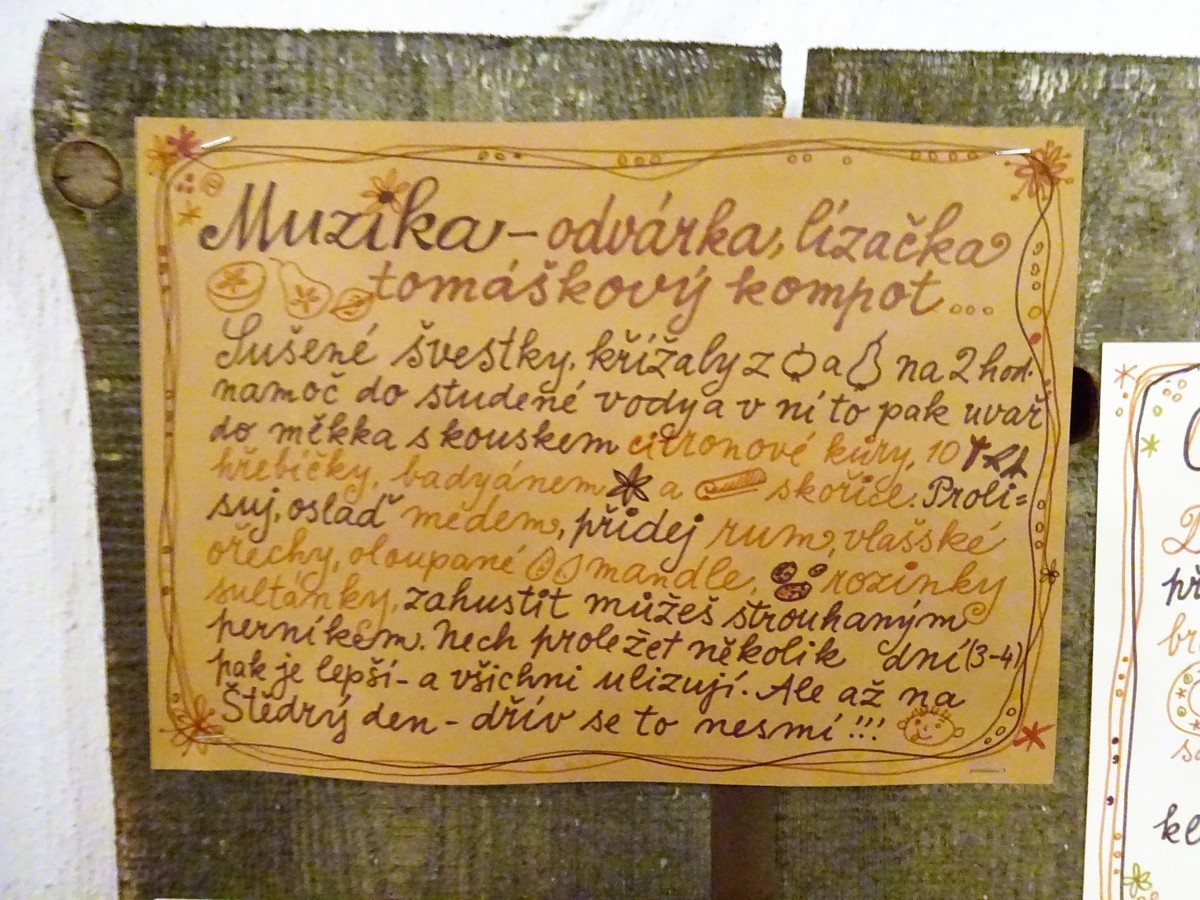 Muzika – odvárka, lízačka
tomáškový kompot...
Sušené švestky, křížaly z a na 2 hod.
namoč do studené vody a v ní to pak uvař
do měkka s kouskem citronové kůry, 10
hřebíčky, badyánem a skořice. Proli=
suj, oslaď medem, přidej rum, vlašské
ořechy, oloupané mandle, rozinky
sultánky, zahustit můžeš strouhaným
perníkem. Nech proležet několik dní (3-4)
pak je lepší - a všichni ulizují. Ale až na
Štědrý den - dřív se to nesmí !!!